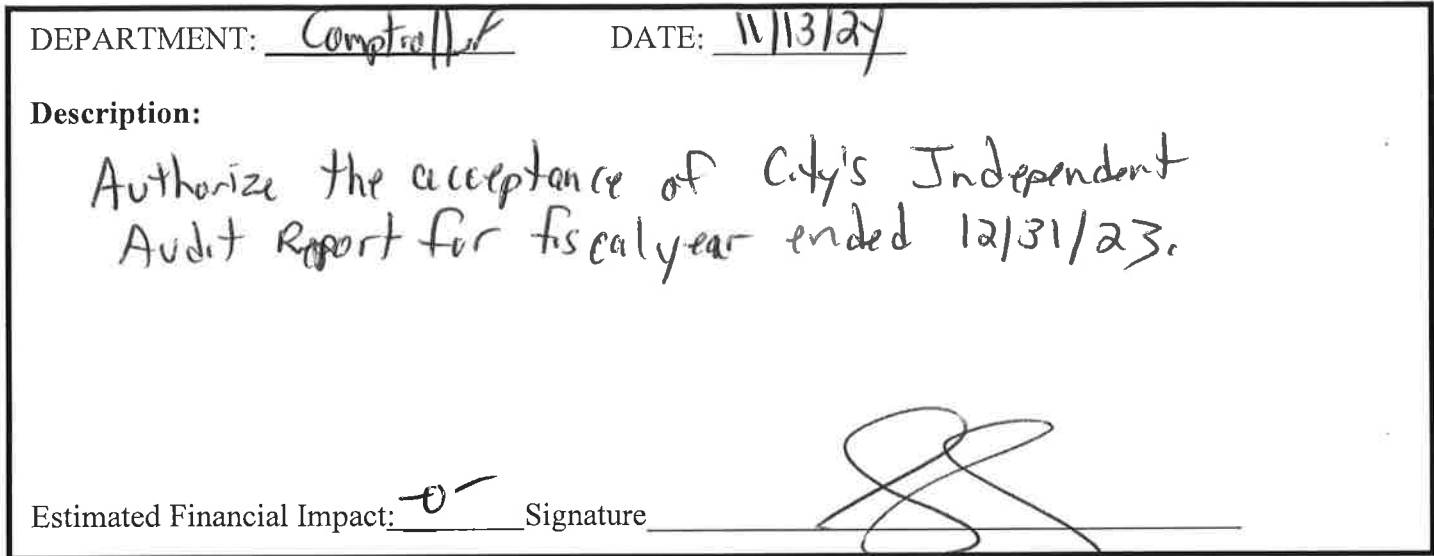 DEPARTMENT: Comptroller DATE: 11/13/24
Description:
Authorize the acceptance of City's Independent
Audit Report for fiscal year ended 12/31/23.
Estimated Financial Impact: -0- Signature